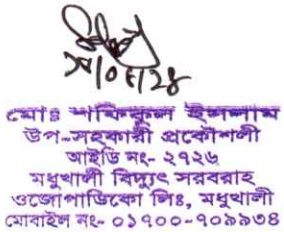 মোঃ শফিকুল ইসলাম
উপ-সহকারী প্রকৌশলী
আইডি নং- ২৭২৬
মধুখালী বিদ্যুৎ সরবরাহ
ওজোপাডিকো লিঃ, মধুখালী
মোবাইল নং- ০১৭০০-৭০৯৯৩৪